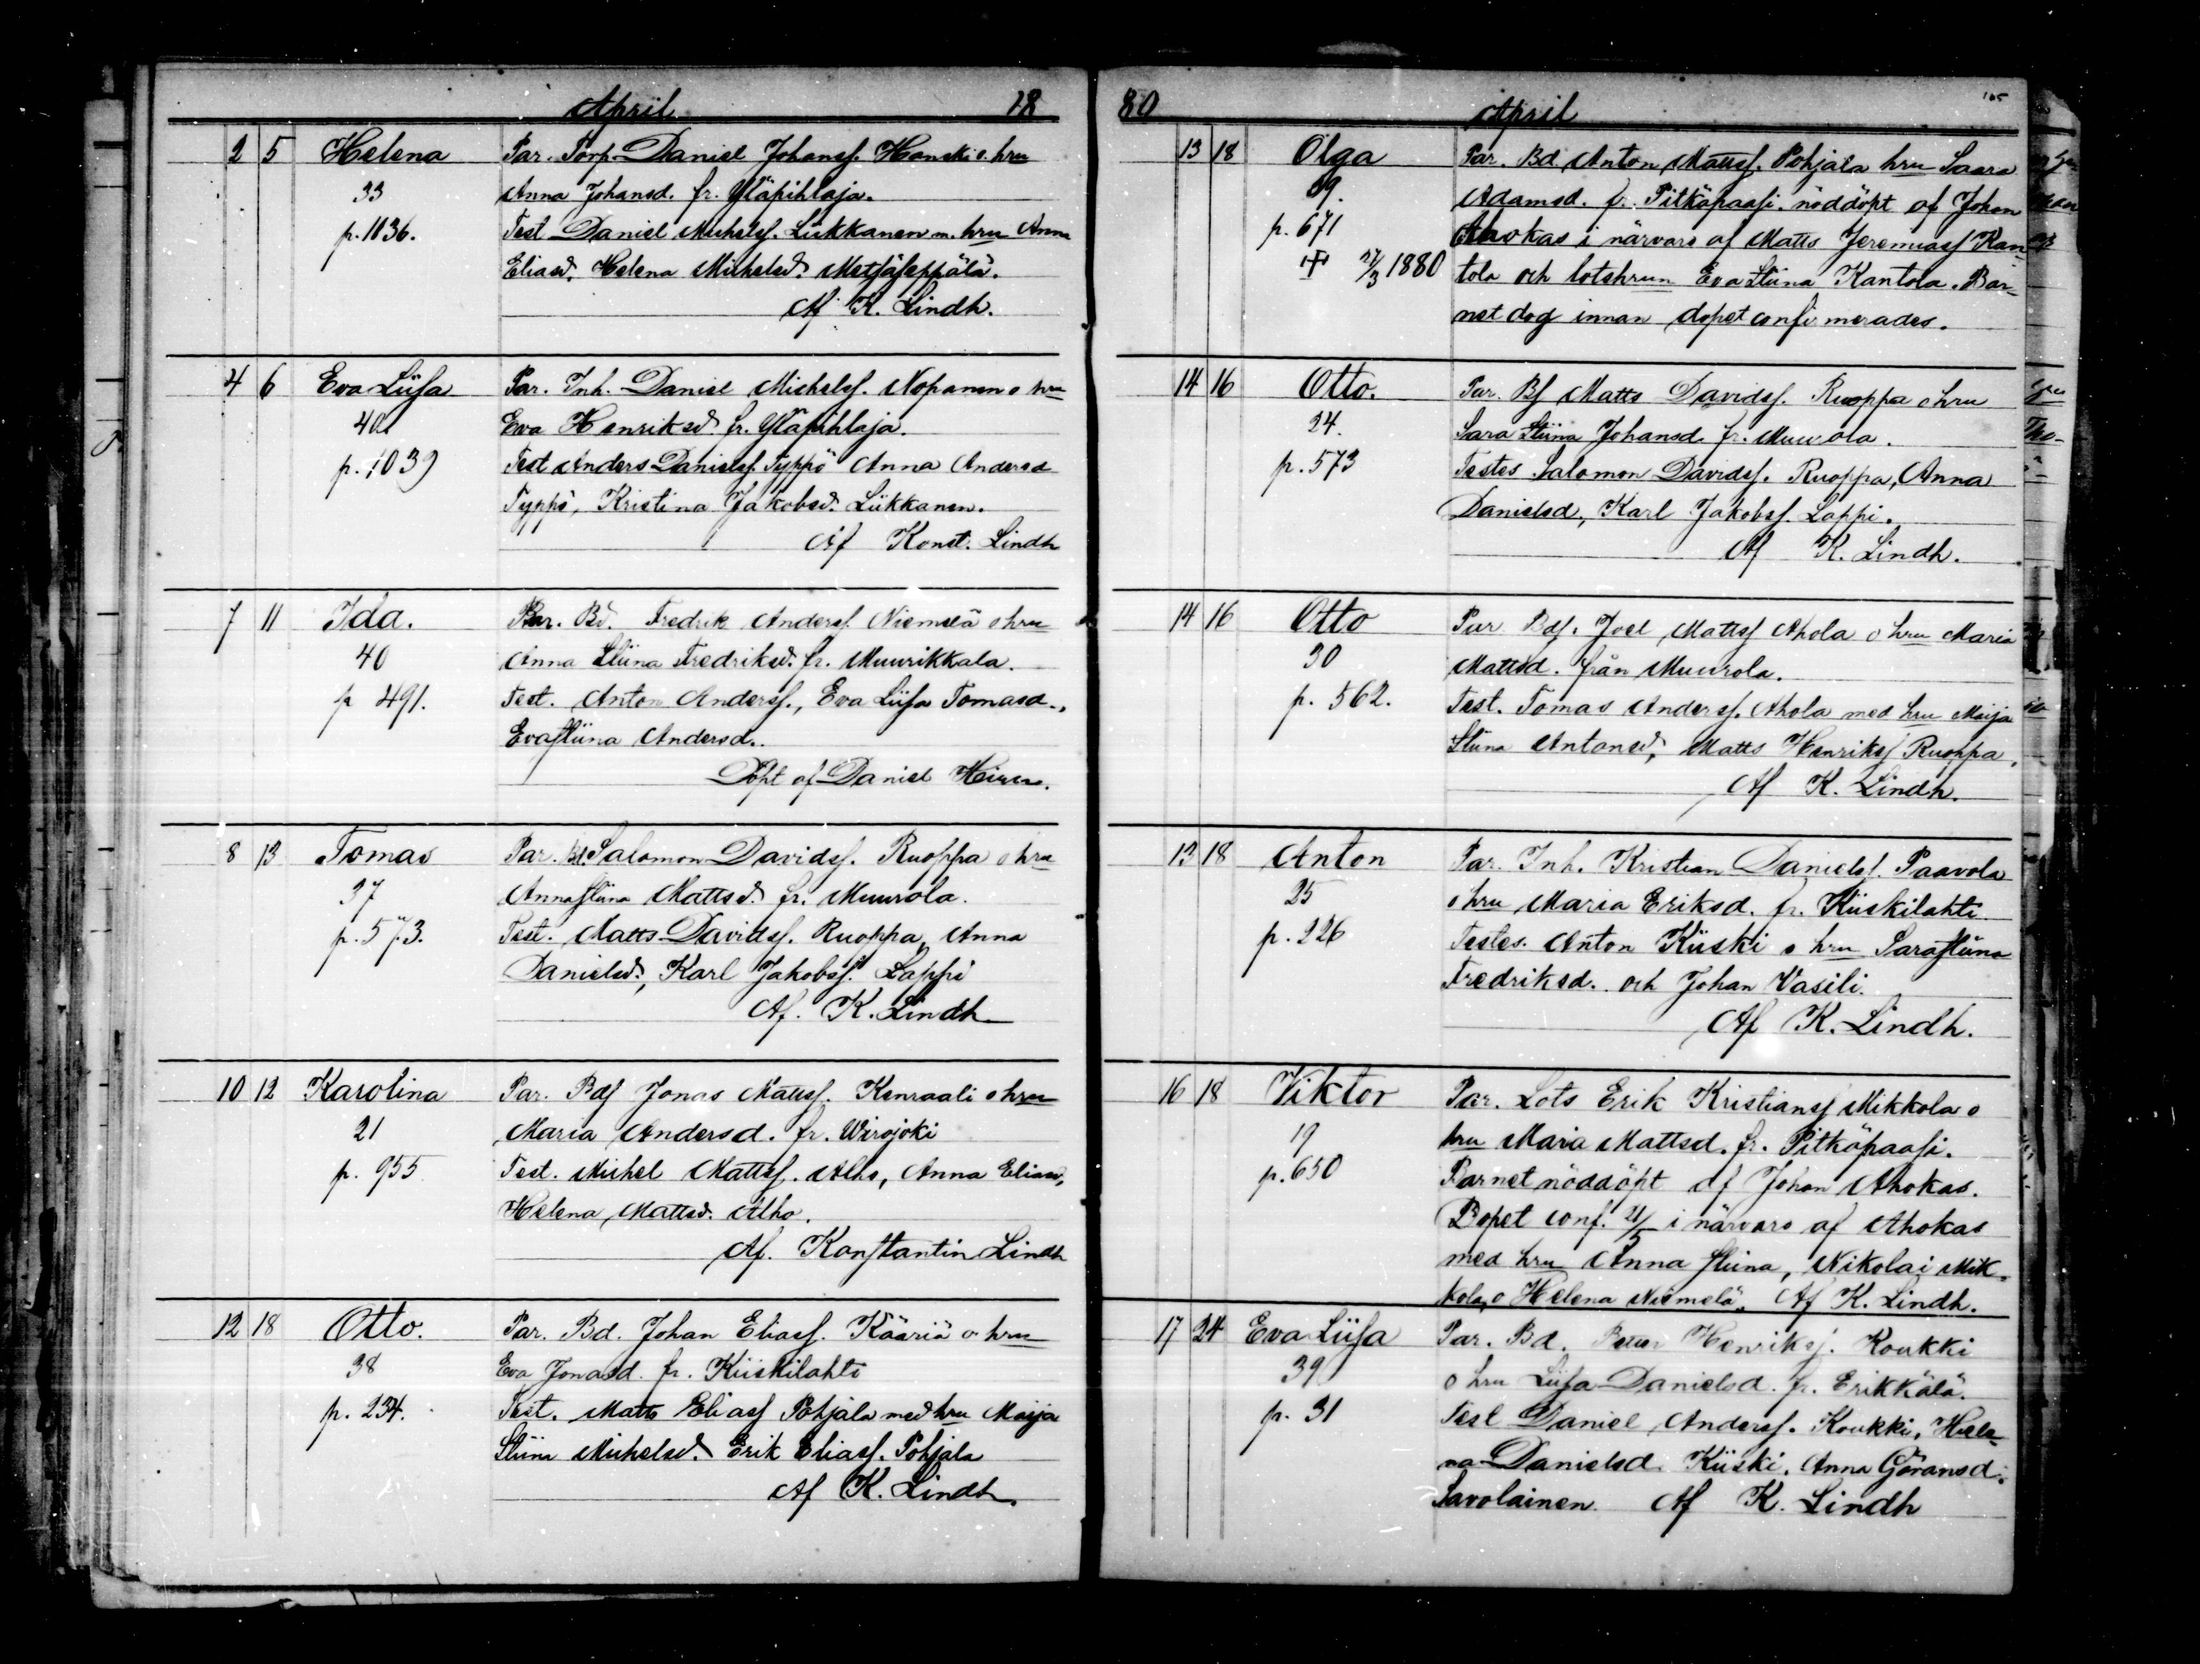 April 18
2 5 Helena Par. Torp. Daniel Johansf. Hanski o. hru
33 Anna Johansd. fr. Yläpihlaja.
p. 1036. Test Daniel Michelsf. Liikkanen m. hru Anna
Eliasd. Helena Michelsd. Metsäseppälä.
Af K. Lindh.
4 6 Eva Liisa Par. Inh. Daniel Michelsf. Nopanen o hru
40 Eva Henriksd. fr. Yläpihlaja.
p. 1039 Test Anders Danielsf. Typpö Anna Andersd
Typpö, Kristina Jakobsd. Liikkanen.
Af Konst. Lindh
7 11 Ida. Par. Bd. Fredrik Andersf. Niemelä o hru
40 Anna Stiina Fredriksd. fr. Muurikkala.
p 491. Test. Anton Andersf., Eva Liisa Tomasd.,
Evastiina Andersd.
Döpt af Daniel
8 13 Tomas Par. Bd. Salomon Davidsf. Ruoppa o hru
37 Annastiina Mattsd. fr. Muurola.
p. 573. Test. Matts Davidsf. Ruoppa, Anna
Danielsd., Karl Jakobsf. Lappi
Af. K. Lindh
10 12 Karolina Par. Bdf Jonas Mattsf. Kenraali o hru
21 Maria Andersd. fr. Wirojoki
p. 955 Test. Michel Mattsf. Alho, Anna Eliasd,
Helena Mattsd. Alho.
Af. Konstantin Lindh
12 18 Otto. Par. Bd. Johan Eliasf. Kääriä o hru
38 Eva Jonasd. fr. Kiiskilahti
p. 234. Test. Matts Eliasf Pohjala med hru Maija
Stiina Michelsd. Erik Eliasf. Pohjala
Af K. Lindh.
80 April 105
13 18 Olga Par. Bd Anton Mattsf. Pohjala hru Saara
Adamsd. fr. Pitkäpaasi. nöddöpt af Johan
p. 671 Ahokas i närvaro af Matts Jeremiasf Kan-
1880 tola och lotshrun Eva Stiina Kantola. Bar-
net dog innan dopet confirmerades.
14 16 Otto. Par. Bf Matts Davidsf. Ruoppa o hru
24. Sara Stiina Johansd. fr. Muurola.
p. 573 Testes Salomon Davidsf. Ruoppa, Anna
Danielsd, Karl Jakobsf. Lappi.
Af K. Lindh.
14 16 Otto Par Bdf. Joel Mattsf Ahola o hru Maria
30 Mattsd. från Muurola.
p. 562. Test. Tomas Andersf. Ahola med hru Maija
Stiina Antonsd, Matts Henriksf Ruoppa.
Af K. Lindh.
13 18 Anton Par. Inh. Kristian Danielsf. Paavola
25 o hru Maria Eriksd. fr. Kiiskilahti
p. 226 Testes. Anton Kiiski o hru Sarastiina
Fredriksd. och Johan Vasili.
Af K. Lindh.
16 18 Viktor Par. Lots Erik Kristiansf Mikkola o
19 hru Maria Mattsd. fr. Pitkäpaasi.
p. 650 Barnet nöddöpt af Johan Ahokas.
Dopet conf. 21/5 i närvaro af Ahokas
med hru Anna Stiina, Nikolai Mik-
kola, o Helena Niemelä. Af K. Lindh.
17 24 Eva Liisa Par. Bd. Henriksf. Koukki
39 o hru Liisa Danielsd. fr. Erikkälä.
p. 31 Test Daniel Andersf. Koukki, Hele-
na Danielsd. Kiiski. Anna Göransd.
Savolainen. Af K. Lindh